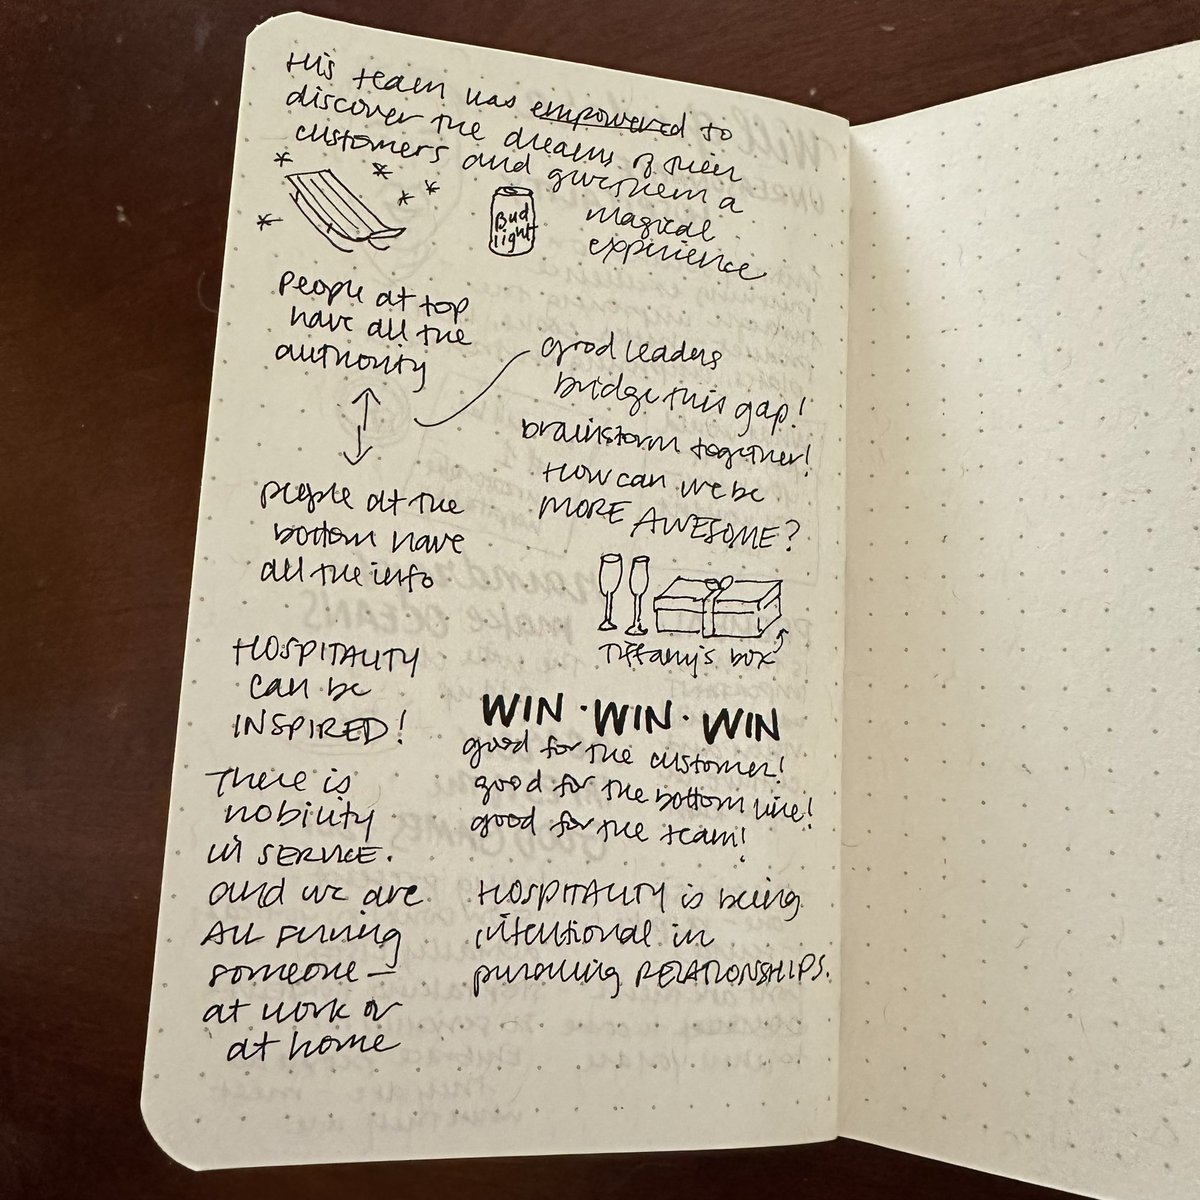 His team was empowered to
discover the dreams of their
customers and give them a
magical
experience
Bud
light
People at top
have all the
authority
people at the
bottom have
all the info
good leaders
bridge this gap!
brainstorm together!
How can we be
MORE AWESOME?
Tiffany's box
HOSPITALITY
can be
INSPIRED!
There is
nobility
in SERVICE.
and we are
All serving
someone —
at work or
at home
WIN · WIN · WIN
good for the customer!
good for the bottom line!
good for the team!
HOSPITALITY is being
intentional in
pursuing RELATIONSHIPS.